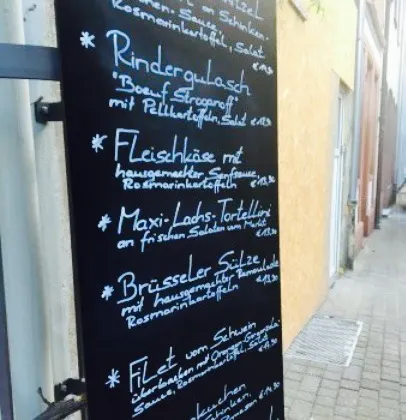 an Schinken-
Sauce,
Rosmarinkartoffel, Salat
* Rindergulasch
"Boeuf Stroganoff"
mit Pellkartoffeln, Salat
* Fleischkäse mit
hausgemachter Senfsauce,
Rosmarinkartoffeln € 13,90
* Maxi-Lachs-Tortellini
an frischen Salaten vom Markt
€ 13,90
* Brüsseler Sülze
mit hausgemachter Remoulade
Rosmarinkartoffeln € 13,90
* Filet vom Schwein
überbacken mit
Sauce, Rosmarinkartoffel, Salat
Schinken,